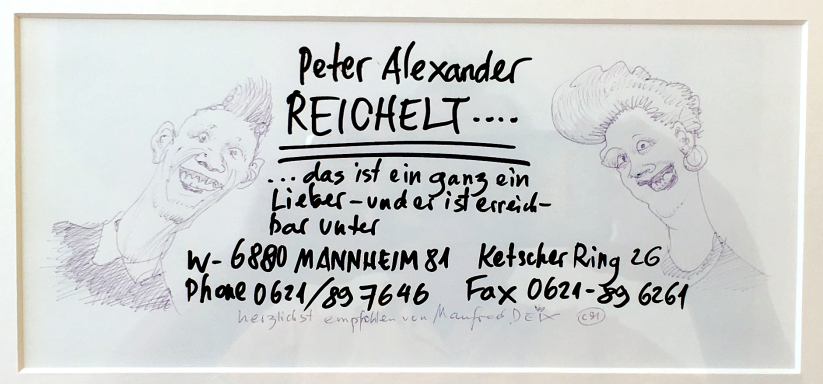 Peter Alexander
REICHELT....
...das ist ein ganz ein
Lieber-und er ist erreich-
bar unter
W-6880 MANNHEIM 81 Ketscher Ring 26
Phone 0621/89 7646 Fax 0621-89 6261
herzlichst empfohlen von Manfred DEIX ©91